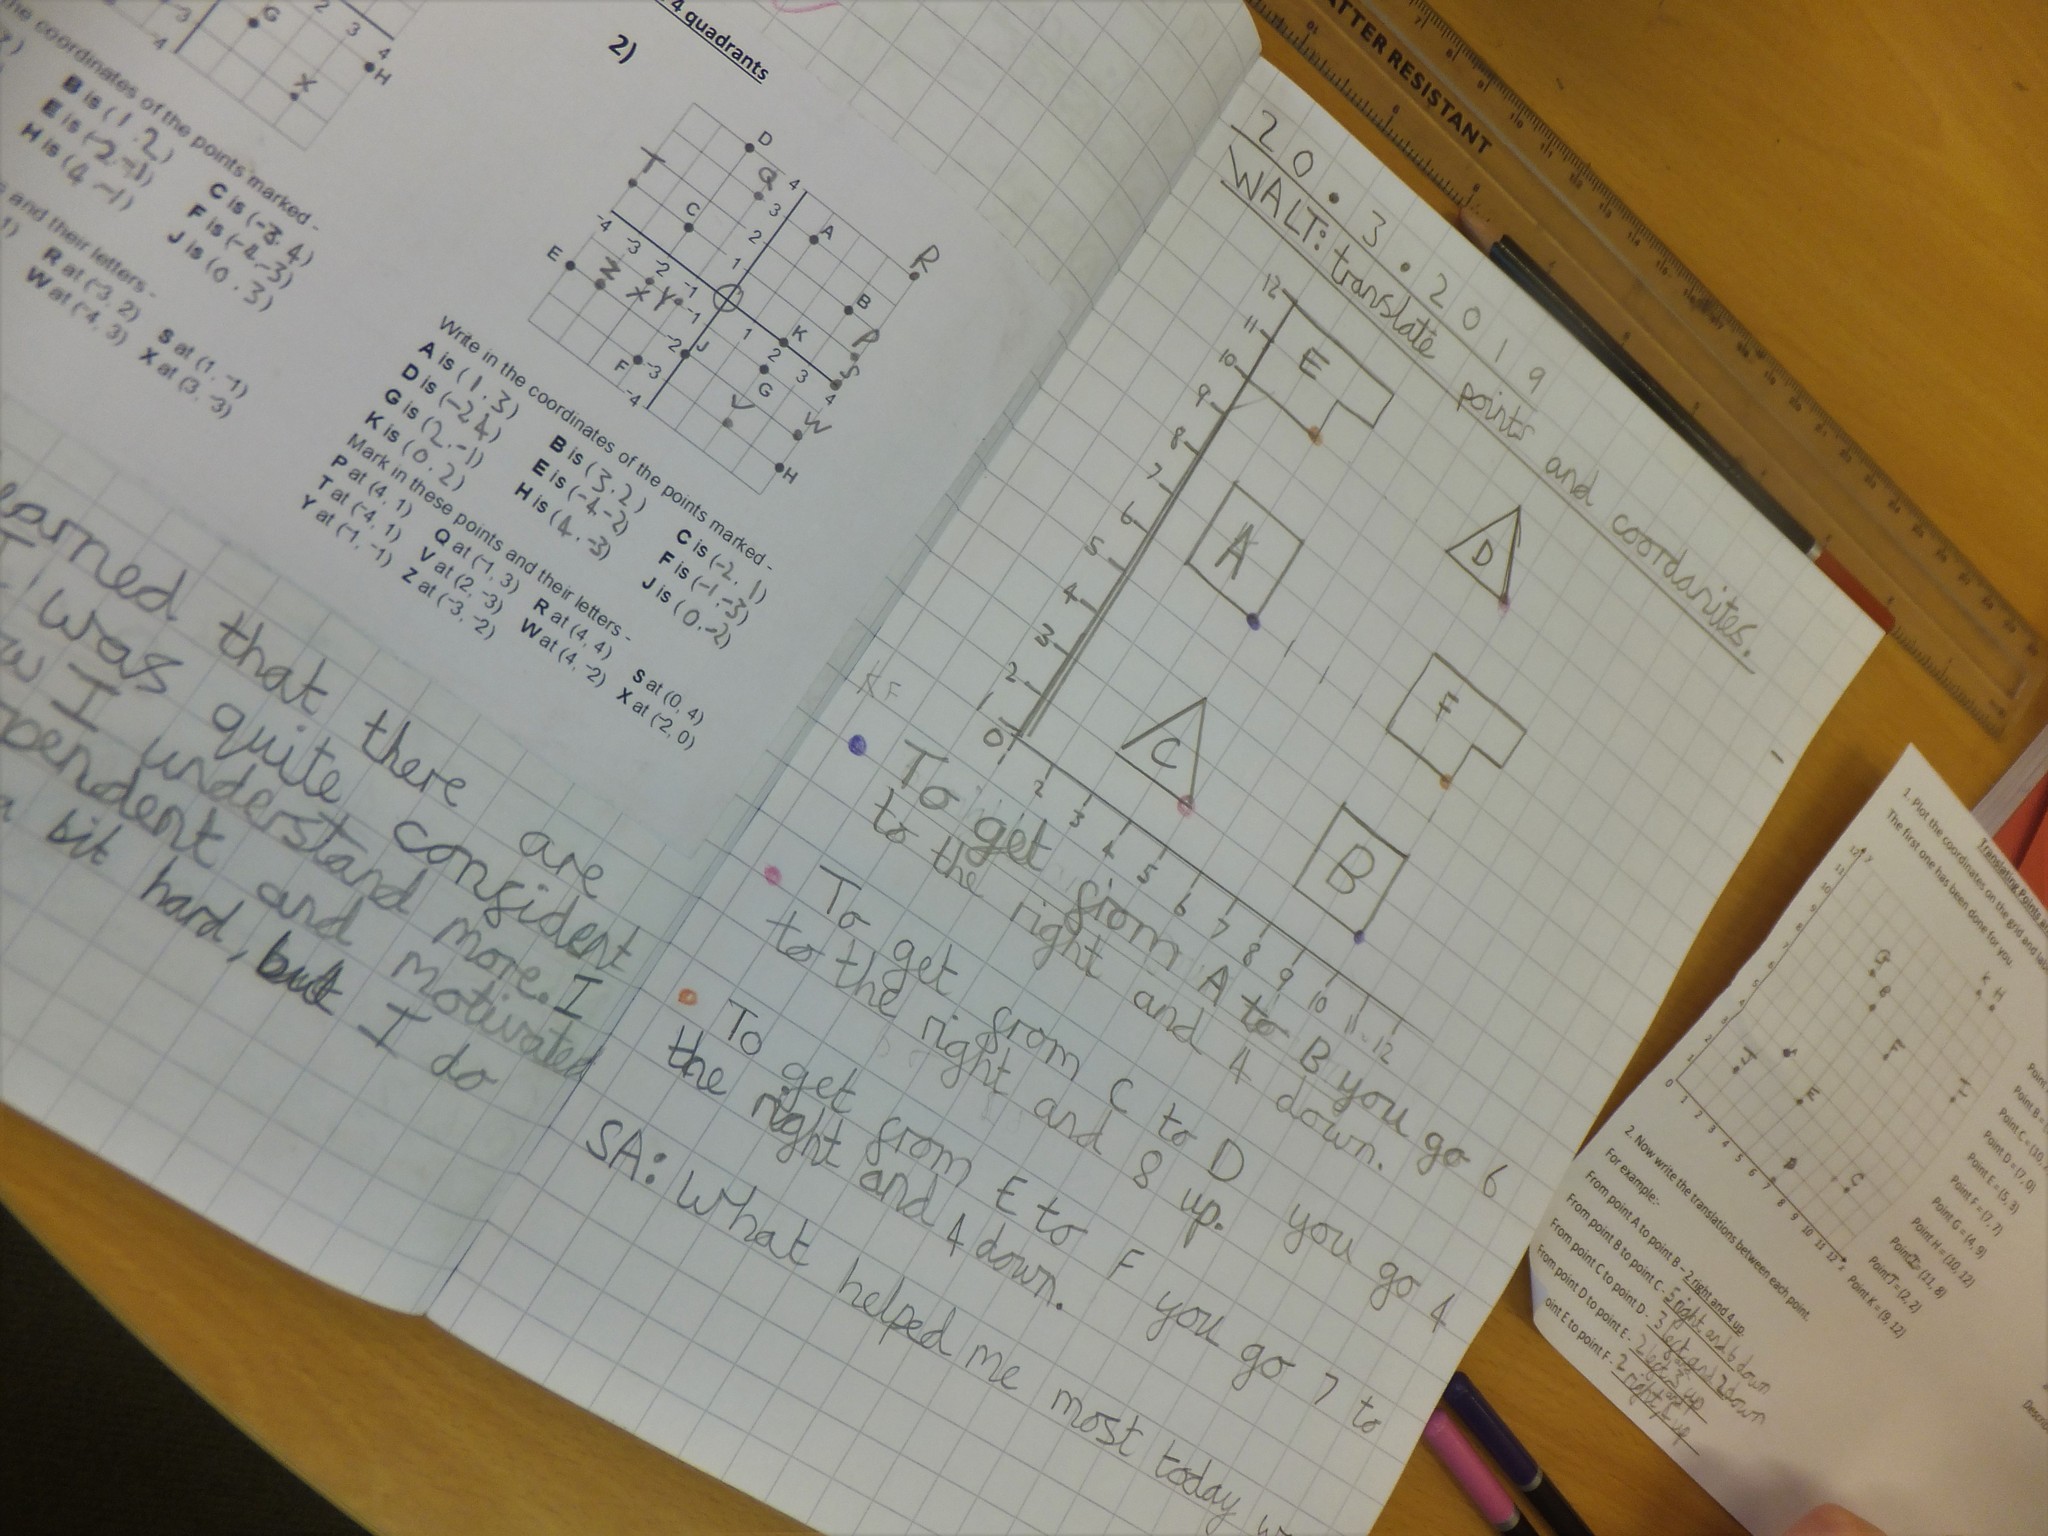 4 quadrants
2)
coordinates of the points marked -
B is (1, 2)
C is (-3, 4)
E is (-2, -1)
F is (-4, -3)
H is (4, -1)
J is (0, 3)
and their letters -
R at (-3, 2)
S at (1, -1)
W at (-4, 3)
X at (3, -3)
G
H
X
2
3
4
-3
-4
D
Q
T
A
R
C
E
Z
X
Y
B
P
K
S
J
F
G
V
W
H
4
3
2
1
-4
-3
-2
-1
1
2
3
4
-1
-2
-3
-4
Write in the coordinates of the points marked -
A is (1, 3)
B is (3, 2)
C is (-2, 1)
D is (-2 4)
E is (-4 -2)
F is (-1, -3)
G is (2, -1)
H is (4, -3)
J is (0, -2)
K is (0, 2)
Mark in these points and their letters -
P at (4, 1)
Q at (-1, 3)
R at (4, 4)
S at (0, 4)
T at (-4, 1)
V at (2, -3)
W at (4, -2)
X at (-2, 0)
Y at (-1, -1)
Z at (-3, -2)
learned that there are
I was quite consident
I understand more. I
and motivated
a bit hard, but I do
20.3.2019
WALT: translate points and coordanites.
12
11
10
9
8
7
6
5
4
3
2
1
0
1 2 3 4 5 6 7 8 9 10 11 12
E
A
D
C
F
B
To get from A to B you go 6
to the right and 4 down.
To get from C to D you go 4
to the right and 8 up.
To get from E to F you go 7 to
the right and 4 down.
SA: What helped me most today
SHATTER RESISTANT
Translating Points
1. Plot the coordinates on the grid and
The first one has been done for you
12 y
11
10
9
8
7
6
5
4
3
2
1
0
1 2 3 4 5 6 7 8 9 10 11 12 x
G
B
K
H
F
J
E
I
D
C
Point
Point B =
Point C = (10,
Point D = (7, 0)
Point E = (5, 3)
Point F = (7, 7)
Point G = (4, 9)
Point H = (10, 12)
Point I = (11, 8)
Point J = (2, 2)
Point K = (9, 12)
2. Now write the translations between each point.
For example:-
From point A to point B - 2 right and 4 up.
From point B to point C - 5 right and 6 down
From point C to point D - 3 left and 2 down
From point D to point E - 2 left 3 up
oint E to point F - 2 right 4 up